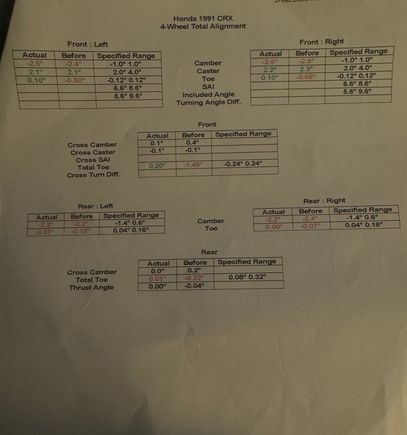 Honda 1991 CRX
4-Wheel Total Alignment
Front : Left
Actual Before Specified Range
-2.5° -2.4° -1.0° 1.0°
2.1° 2.1° 2.0° 4.0°
0.10° -0.80° -0.12° 0.12°
6.6° 8.6°
5.6° 9.6°
Camber
Caster
Toe
SAI
Included Angle
Turning Angle Diff.
Front : Right
Actual Before Specified Range
-1.0° 1.0°
2.2° 2.3° 2.0° 4.0°
0.10° -0.12° 0.12°
6.6° 8.6°
5.6° 9.6°
Front
Actual Before Specified Range
Cross Camber 0.1° 0.4°
Cross Caster -0.1° -0.1°
Cross SAI
Total Toe 0.20° -0.24° 0.24°
Cross Turn Diff.
Rear : Left
Actual Before Specified Range
-2.2° -2.2° -1.4° 0.6°
0.01° 0.04° 0.16°
Camber
Toe
Rear : Right
Actual Before Specified Range
-2.4° -1.4° 0.6°
0.00° -0.07° 0.04° 0.16°
Rear
Actual Before Specified Range
Cross Camber 0.0° 0.2°
Total Toe 0.01° -0.22° 0.08° 0.32°
Thrust Angle 0.00° -0.04°